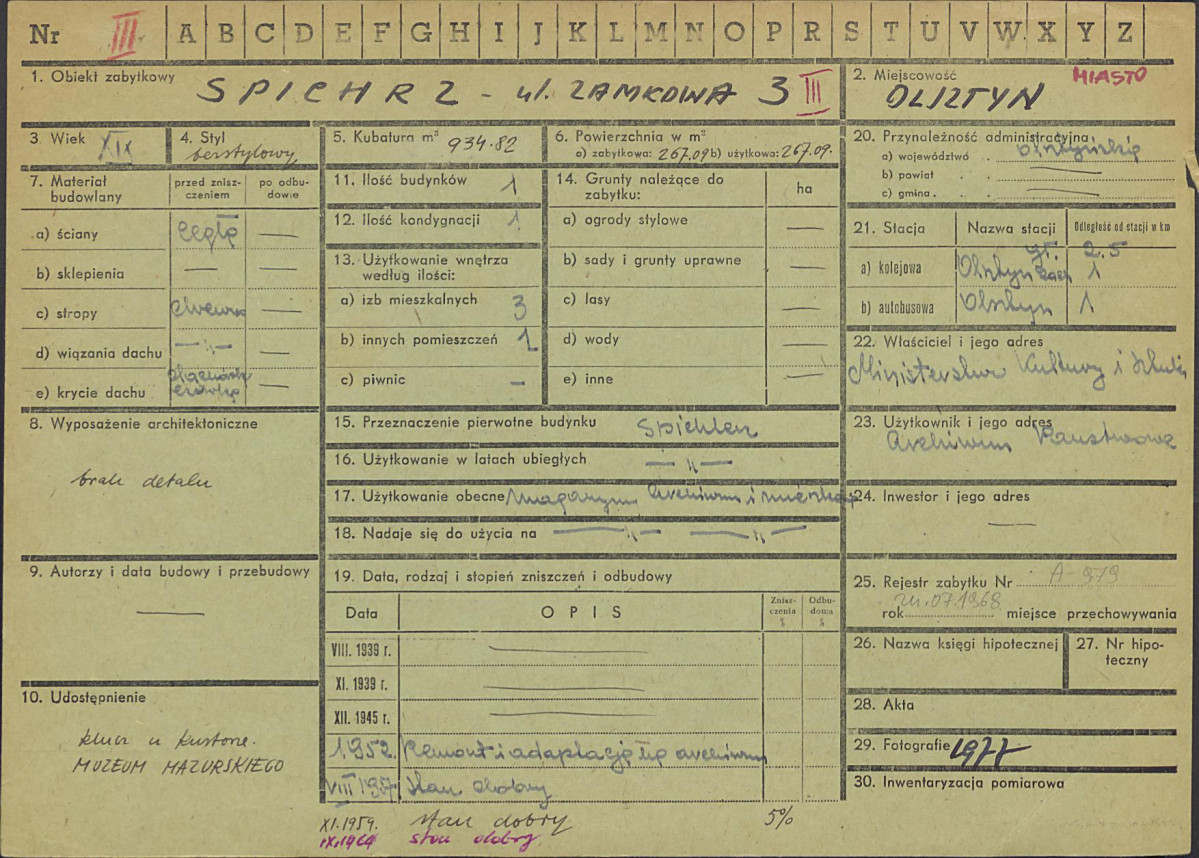 Nr III A B C D E F G H I J K L M N O P R S T U V W X Y Z
1. Obiekt zabytkowy SPICHRZ - ul. ZAMKOWA 3 III
2. Miejscowość MIASTO
OLSZTYN
3. Wiek XIX
4. Styl
bezstylowy
5. Kubatura m³ 934.82
6. Powierzchnia w m²
a) zabytkowa: 267.09 b) użytkowa: 267.09.
7. Materiał budowlany
przed zniszczeniem
po odbudowie
a) ściany cegła —
b) sklepienia — —
c) stropy drewno —
d) wiązania dachu —„— —
e) krycie dachu —
8. Wyposażenie architektoniczne
brak detalu
9. Autorzy i data budowy i przebudowy
—
10. Udostępnienie
klucz u kustosza
MUZEUM MAZURSKIEGO
11. Ilość budynków 1
12. Ilość kondygnacji 1
13. Użytkowanie wnętrza
według ilości:
a) izb mieszkalnych 3
b) innych pomieszczeń 1
c) piwnic —
14. Grunty należące do
zabytku:
ha
a) ogrody stylowe —
b) sady i grunty uprawne —
c) lasy —
d) wody —
e) inne —
15. Przeznaczenie pierwotne budynku Spichlerz
16. Użytkowanie w latach ubiegłych —„—
17. Użytkowanie obecne magazyn Archiwum i
18. Nadaje się do użycia na —„— —„—
19. Data, rodzaj i stopień zniszczeń i odbudowy
Data OPIS Zniszczenia % Odbudowa %
VIII. 1939 r. —
XI. 1939 r. —
XII. 1945 r. —
1952. Remont i adaptacja na archiwum
VIII 1957 stan dobry
XI.1959. stan dobry 5%
IX.1964 stan dobry
20. Przynależność administracyjna
a) województwo olsztyńskie
b) powiat —
c) gmina —
21. Stacja
Nazwa stacji
Odległość od stacji w km
a) kolejowa Olsztyn gł. 2.5
Zach 1
b) autobusowa Olsztyn 1
22. Właściciel i jego adres
Ministerstwo Kultury i Sztuki
23. Użytkownik i jego adres
Archiwum Państwowe
24. Inwestor i jego adres
—
25. Rejestr zabytku Nr A-979
rok 24.07.1968 miejsce przechowywania
26. Nazwa księgi hipotecznej
27. Nr hipoteczny
28. Akta
29. Fotografie 1977
30. Inwentaryzacja pomiarowa